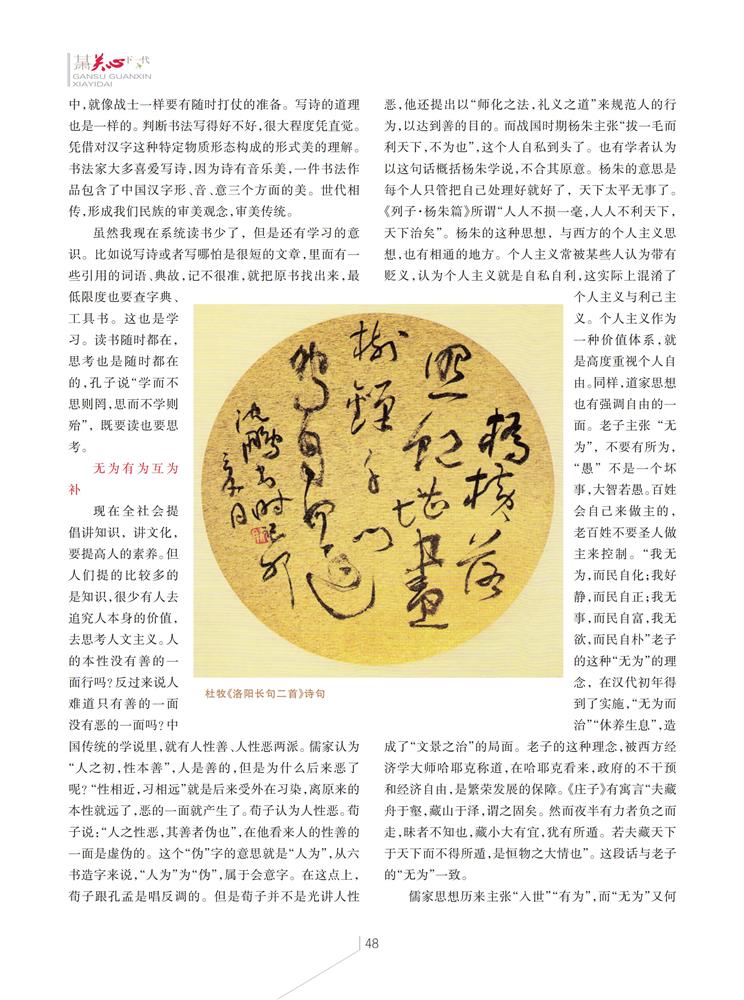 甘肃关心下一代
GANSU GUANXIN
XIAYIDAI
中,就像战士一样要有随时打仗的准备。写诗的道理
也是一样的。判断书法写得好不好,很大程度凭直觉。
凭借对汉字这种特定物质形态构成的形式美的理解。
书法家大多喜爱写诗,因为诗有音乐美,一件书法作
品包含了中国汉字形、音、意三个方面的美。世代相
传,形成我们民族的审美观念,审美传统。
虽然我现在系统读书少了，但是还有学习的意
识。比如说写诗或者写哪怕是很短的文章,里面有一
些引用的词语、典故,记不很准,就把原书找出来,最
低限度也要查字典、
工具书。这也是学
习。读书随时都在,
思考也是随时都在
的,孔子说“学而不
思则罔,思而不学则
殆”，既要读也要思
考。
无为有为互为
补
现在全社会提
倡讲知识，讲文化,
要提高人的素养。但
人们提的比较多的
是知识,很少有人去
追究人本身的价值,
去思考人文主义。人
的本性没有善的一
面行吗?反过来说人
难道只有善的一面
没有恶的一面吗?中
国传统的学说里,就有人性善、人性恶两派。儒家认为
“人之初,性本善”,人是善的,但是为什么后来恶了
呢?“性相近,习相远”就是后来受外在习染,离原来的
本性就远了,恶的一面就产生了。荀子认为人性恶。荀
子说:“人之性恶,其善者伪也”,在他看来人的性善的
一面是虚伪的。这个“伪”字的意思就是“人为”,从六
书造字来说,“人为”为“伪”,属于会意字。在这点上,
荀子跟孔孟是唱反调的。但是荀子并不是光讲人性
恶,他还提出以“师化之法,礼义之道”来规范人的行
为,以达到善的目的。而战国时期杨朱主张“拔一毛而
利天下,不为也”,这个人自私到头了。也有学者认为
以这句话概括杨朱学说,不合其原意。杨朱的意思是
每个人只管把自己处理好就好了，天下太平无事了。
《列子·杨朱篇》所谓“人人不损一毫,人人不利天下,
天下治矣”。杨朱的这种思想，与西方的个人主义思
想,也有相通的地方。个人主义常被某些人认为带有
贬义,认为个人主义就是自私自利,这实际上混淆了
个人主义与利己主
义。个人主义作为
一种价值体系,就
是高度重视个人自
由。同样,道家思想
也有强调自由的一
面。老子主张“无
为”，不要有所为,
“愚”不是一个坏
事,大智若愚。百姓
会自己来做主的,
老百姓不要圣人做
主来控制。“我无
为,而民自化;我好
静,而民自正;我无
事,而民自富,我无
欲,而民自朴”老子
的这种“无为”的理
念，在汉代初年得
到了实施,“无为而
治”“休养生息”,造
成了“文景之治”的局面。老子的这种理念,被西方经
济学大师哈耶克称道,在哈耶克看来,政府的不干预
和经济自由,是繁荣发展的保障。《庄子》有寓言“夫藏
舟于壑,藏山于泽,谓之固矣。然而夜半有力者负之而
走,昧者不知也,藏小大有宜,犹有所遁。若夫藏天下
于天下而不得所遁,是恒物之大情也”。这段话与老子
的“无为”一致。
儒家思想历来主张“入世”“有为”,而“无为”又何
橋橫落
照虹堪畫
樹鎖千門
鳥自還
沈鵬書時己卯
杜牧《洛阳长句二首》诗句
48